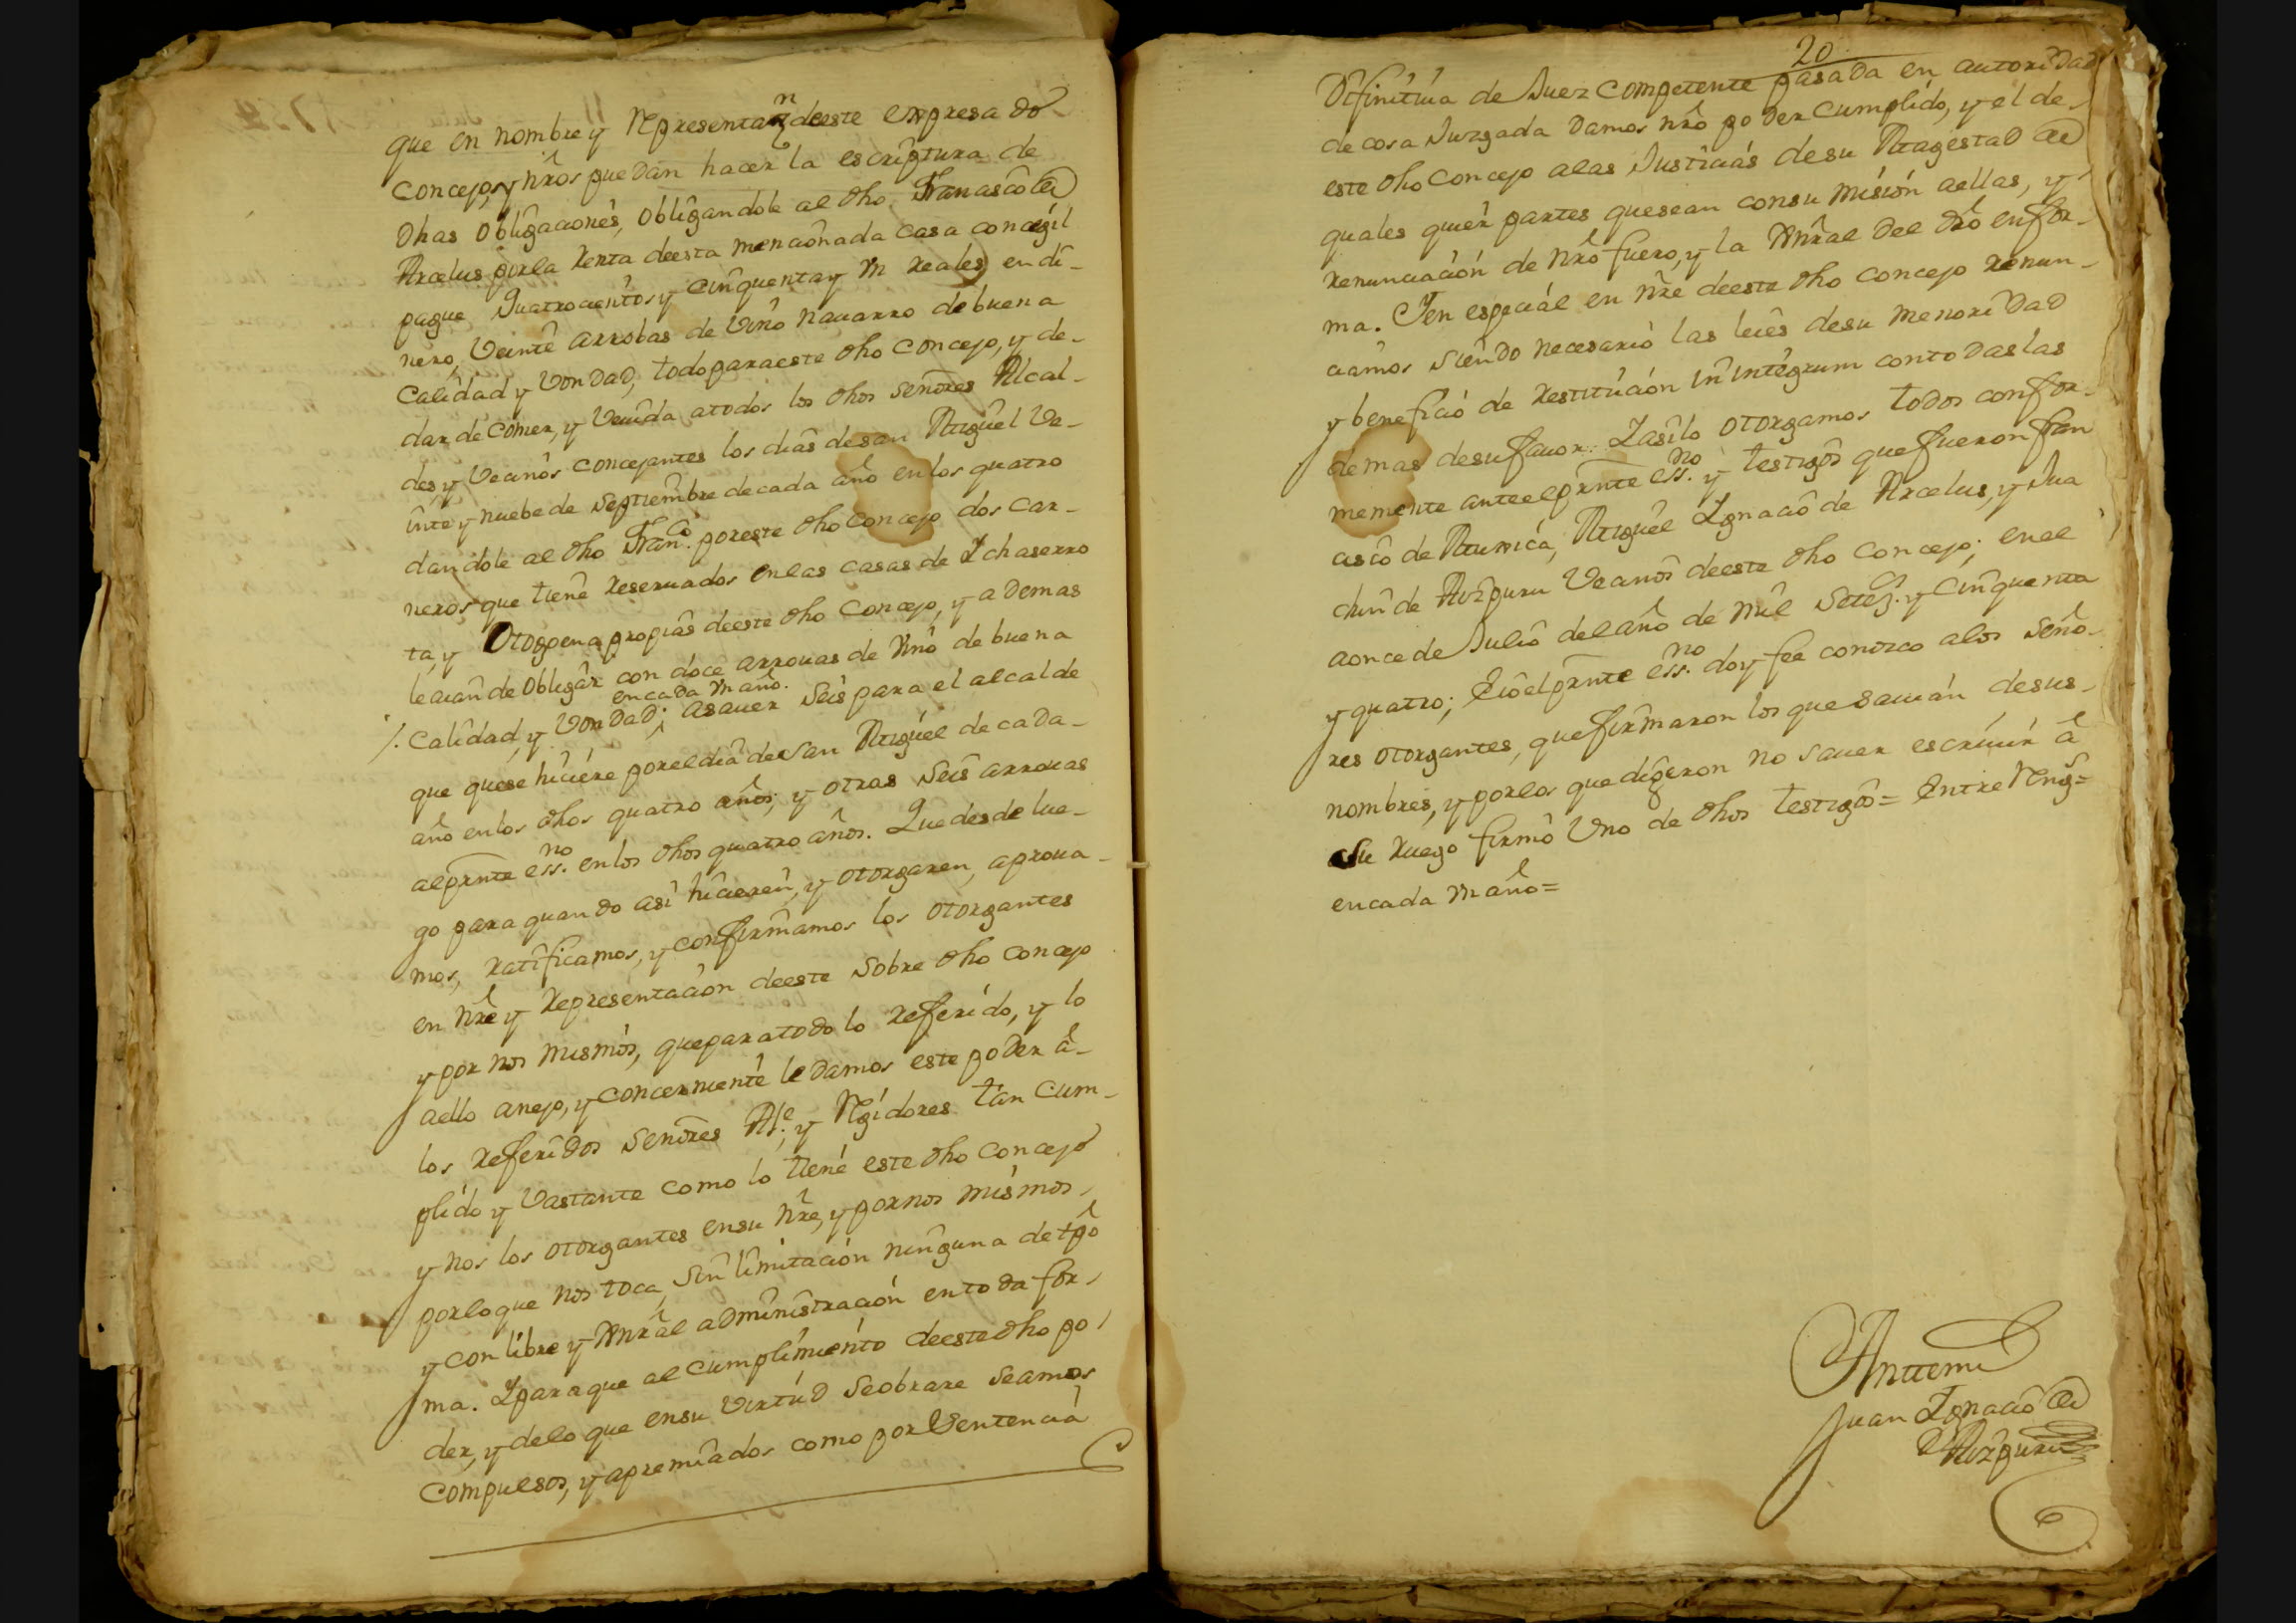 que en nombre y Representaz.n deeste expresado
Concejo, y nr̃os puedan hacer la escriptura de
dhas obligaciones, obligandole al dho Francisco de
Arcelus por la renta deesta mencionada casa concegil
pague Quatrocientos y cinquenta y Vn reales en di-
nero, Veinte arrobas de Vino nauarro de buena
Calidad y Vondad, todo para este dho Concejo, y de-
dar de Comer, y Veuida a todos los dhos señores Alcal-
des, y Vecinos concejantes los dias de san Miguel Ve-
inte y nuebe de septiembre de cada año en los quatro
dandole al dho Franco. por este dho Concejo dos Car-
neros que tiene reseruados en las casas de Ychaserro
ta, y Otorpena propias deeste dho Concejo, y ademas
le aian de Obligar con doce arrouas de Vino de buena
en cada Vn año.
/. Calidad, y Vondad; asauer seis para el alcalde
que quese hiciere por el dia de San Miguel de cada-
año en los dhos quatro años; y otras seis arrouas
al prnte essno. en los dhos quatro años. Que desde lue-
go para quando asi hicieren, y otorgaren, aproua-
mos, ratificamos, y confirmamos los otorgantes
en nr̃e y Representacion deeste sobre dho Concejo
y por nos mismos, que para todo lo referido, y lo
aello anejo, y concerniente le damos este poder a-
los referidos señores Ale. y Regidores tan Cum-
plido y Vastante como lo tiene este dho Concejo
y nos los otorgantes en su nr̃e, y por nos mismos,
por lo que nos toca, sin limitacion ninguna de tpo
y con libre y general administracion en toda for-
ma. Y para que al cumplimiento deeste dho po-
der, y de lo que en su Virtud se obrare seamos
compulsos, y apremiados como por Sentencia
20
Difinitiua de Juez Competente pasada en autoridad
de cosa Juzgada damos nr̃o poder Cumplido, y el de-
este dho Concejo a las Justicias de su Magestad de
quales quier partes que sean con su mision aellas, y
renunciacion de nr̃o fuero, y la general del dr̃o en for-
ma. Y en especial en nr̃e deeste dho Concejo renun-
ciamos siendo necesario las leies de su menoridad
y beneficio de restitucion in integrum con todas las
demas de su fauor. Y asi lo otorgamos todos confor-
memente ante el prnte essno. y testigos que fueron Fran
cisco de Munica, Miguel Ygnacio de Arcelus, y Jua
chin de Aizpuru Vecinos deeste dho Concejo; en el
a once de Julio del año de mil Setez.s y cinquenta
y quatro; E io el prnte essno. doy fee conozco a los seño-
res otorgantes, que firmaron los que sauian, de sus-
nombres, y por los que digeron no sauer escriuir a
su ruego firmo Vno de dhos testigos= Entre Reng.s=
en cada Vn año=
Anttemi
Juan Ygnacio de
Aizpuru